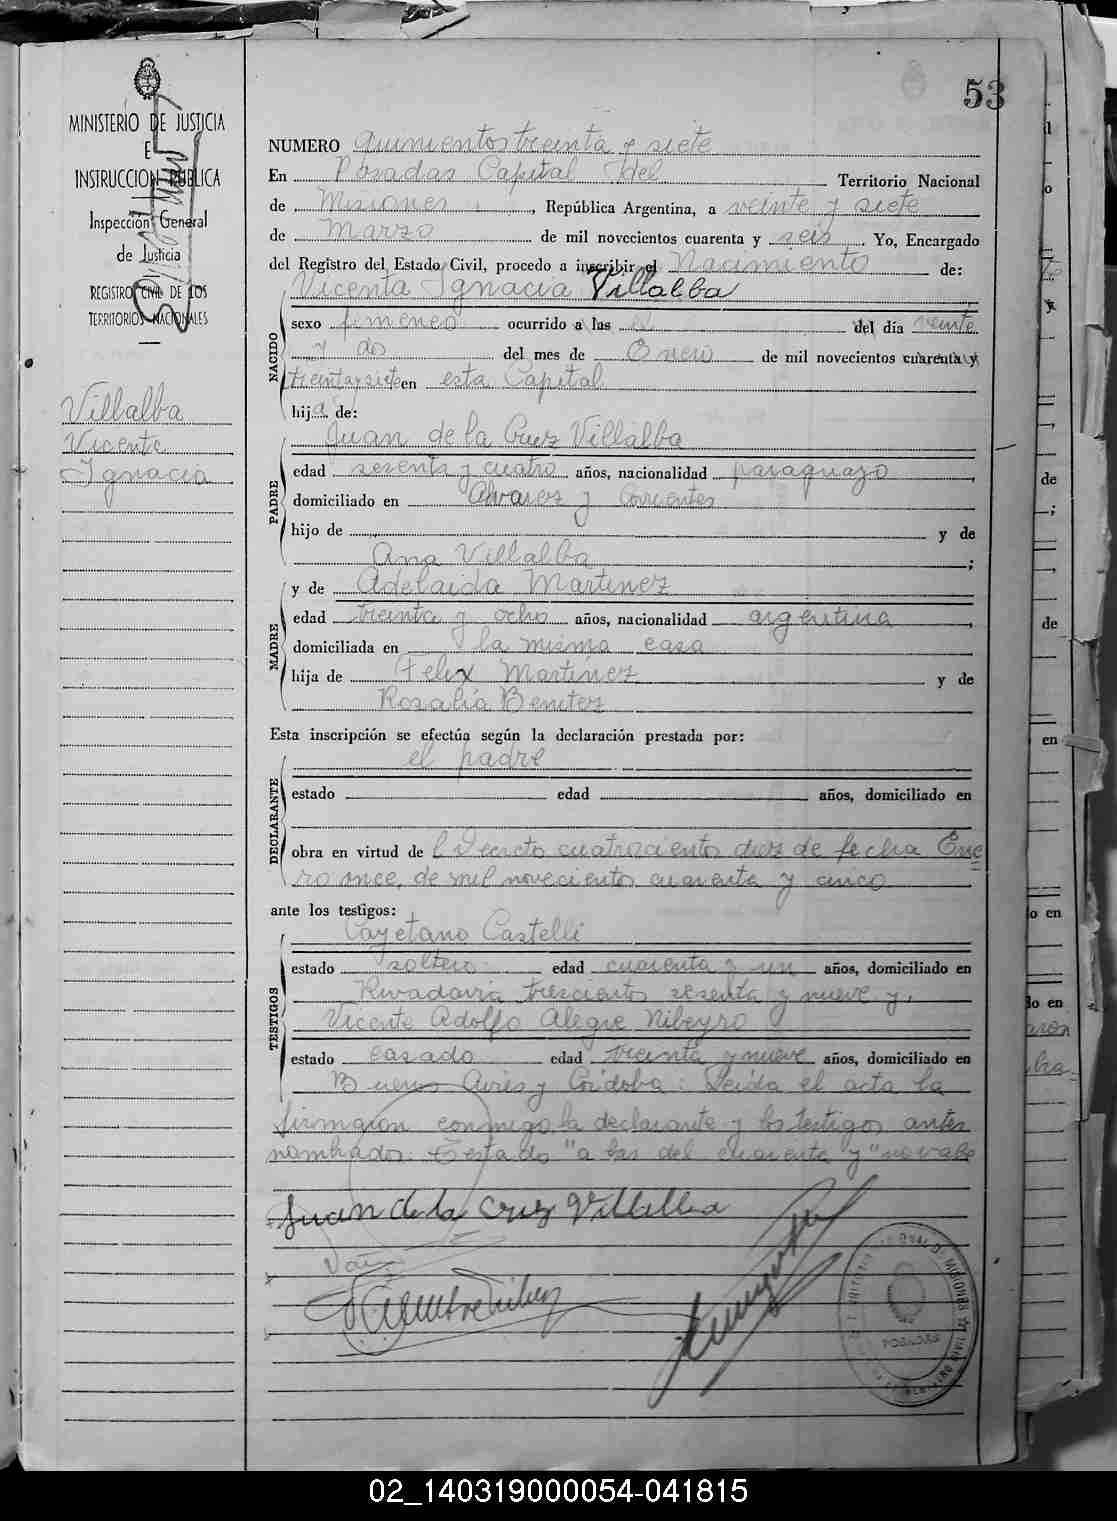 53
MINISTERIO DE JUSTICIA
E
INSTRUCCION PUBLICA
Inspección General
de Justicia
REGISTRO CIVIL DE LOS
TERRITORIOS NACIONALES
Villalba
Vicente
Ignacia
NUMERO quinientos treinta y siete
En Posadas Capital del Territorio Nacional
de Misiones, República Argentina, a veinte y siete
de Marzo de mil novecientos cuarenta y seis Yo, Encargado
del Registro del Estado Civil, procedo a inscribir el Nacimiento de:
Vicenta Ignacia Villalba
NACIDO
sexo femeneo ocurrido a las del día veinte
y dos del mes de Enero de mil novecientos cuarenta y
treinta y siete en esta Capital
hija de:
Juan de la Cruz Villalba
PADRE
edad sesenta y cuatro años, nacionalidad paraguayo,
domiciliado en Alvarez y Corrientes
hijo de y de
Ana Villalba;
y de Adelaida Martinez
MADRE
edad treinta y ocho años, nacionalidad argentina,
domiciliada en la misma casa
hija de Felix Martinez y de
Rosalia Benitez
Esta inscripción se efectúa según la declaración prestada por:
el padre
DECLARANTE
estado edad años, domiciliado en
obra en virtud de l Decreto cuatrociento diez de fecha Ene
ro once, de mil novecientos cuarenta y cinco
ante los testigos:
Cayetano Castelli
TESTIGOS
estado soltero edad cuarenta y un años, domiciliado en
Rivadavia trescientos sesenta y nueve y,
Vicente Adolfo Alegre Ribeyro
estado casado edad treinta y nueve años, domiciliado en
Buenos Aires y Cordoba: Leida el acta la
firmaron conmigo, la declarante y los testigos antes
nombrados. Testado "a las del cuarenta y" no vale
Juan de la Cruz Villalba
02_140319000054-041815